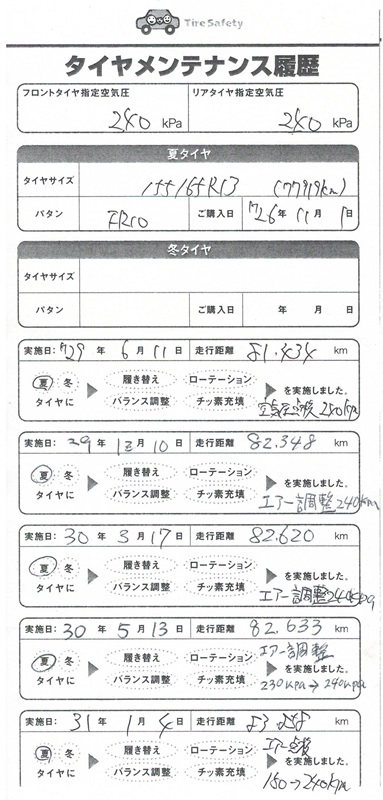 Tire Safety
タイヤメンテナンス履歴
フロントタイヤ指定空気圧 リアタイヤ指定空気圧
240 kPa 240 kPa
夏タイヤ
タイヤサイズ 155/65R13 (77919km)
パタン ご購入日 26年 11月 1日
冬タイヤ
タイヤサイズ
パタン ご購入日 年 月 日
実施日: 29年 6月 11日 走行距離 81.434 km
夏 冬 履き替え ローテーション を実施しました。
タイヤに バランス調整 チッ素充填
空気圧点検 240kPa
実施日: 29年 12月 10日 走行距離 82.348 km
夏 冬 履き替え ローテーション を実施しました。
タイヤに バランス調整 チッ素充填
エアー調整240kPa
実施日: 30年 3月 17日 走行距離 82.620 km
夏 冬 履き替え ローテーション を実施しました。
タイヤに バランス調整 チッ素充填
エアー調整240kPa
実施日: 30年 5月 13日 走行距離 82.633 km
エアー調整
夏 冬 履き替え ローテーション を実施しました。
タイヤに バランス調整 チッ素充填
230kPa→240kPa
実施日: 31年 1月 4日 走行距離 km
エアー点検
夏 冬 履き替え ローテーション を実施しました。
タイヤに バランス調整 チッ素充填
150→240kPa